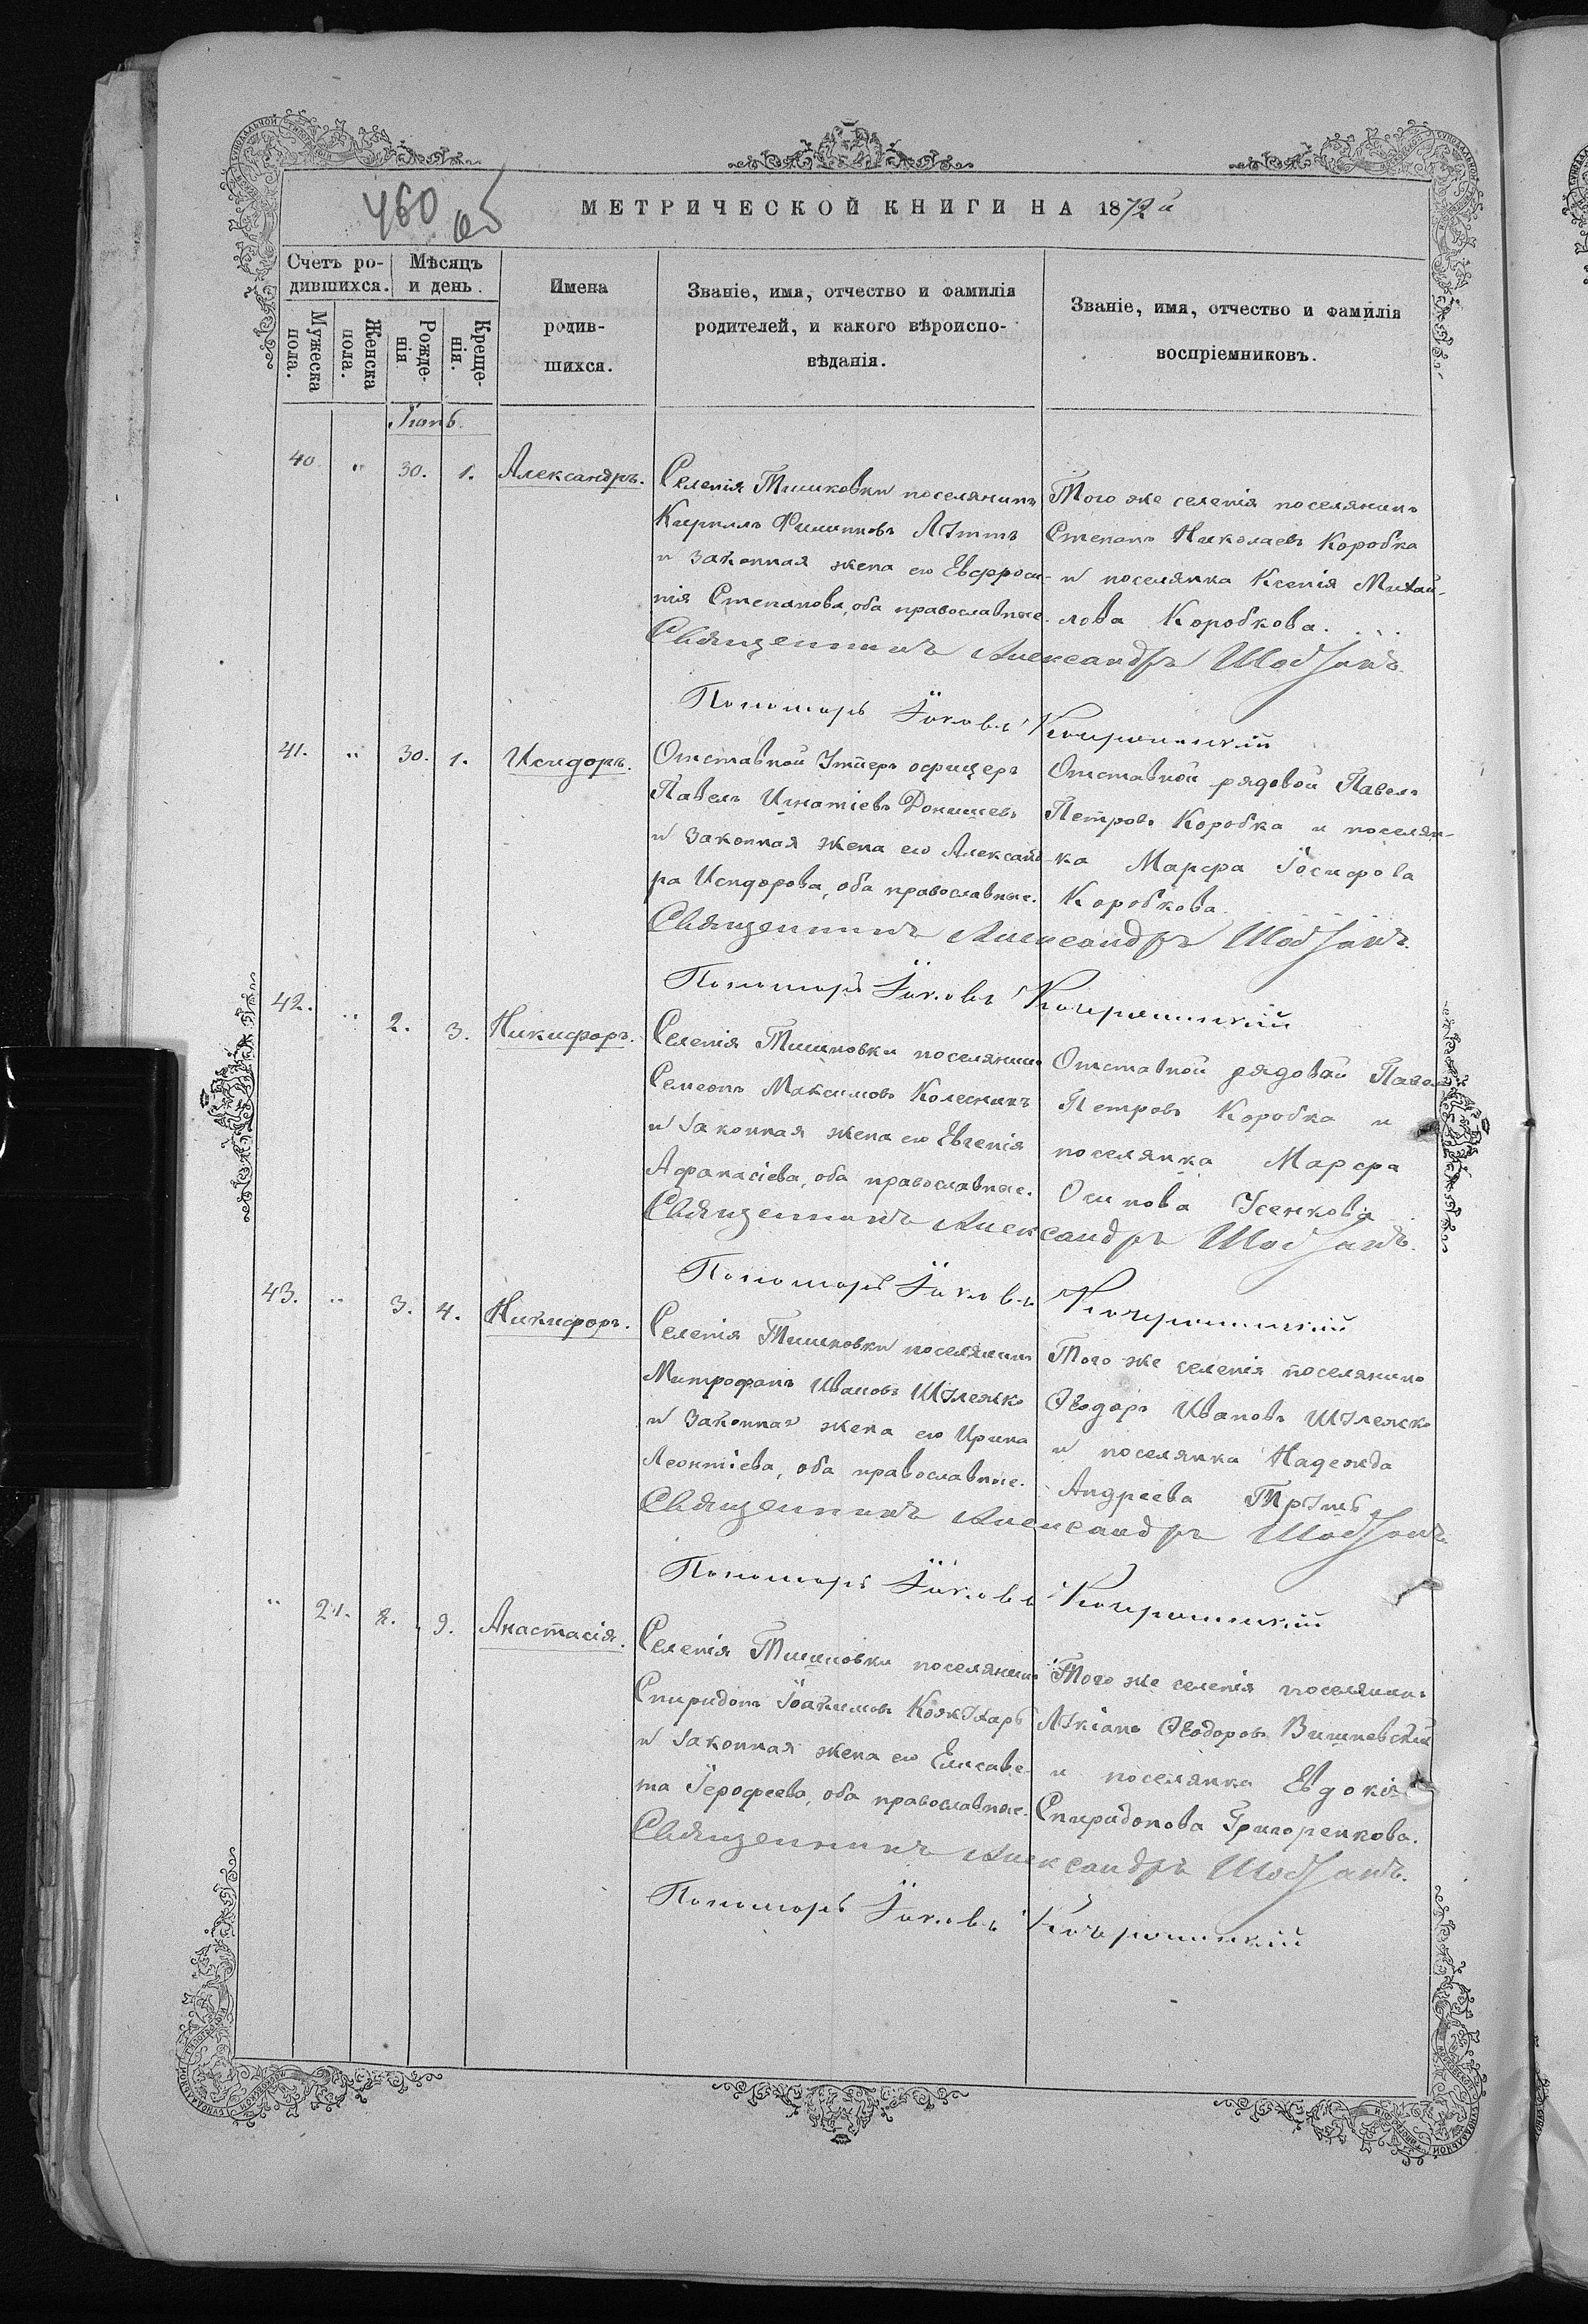 460 об
МЕТРИЧЕСКОЙ КНИГИ НА 1872й
Счетъ родившихся.
Мѣсяцъ и день.
Мужеска пола.
Женска пола.
Рожденія
Крещенія.
Имена родившихся.
Званіе, имя, отчество и фамилія
родителей, и какого вѣроиспо-
вѣданія.
Званіе, имя, отчество и фамилія
воспріемниковъ.
Іюнь
40 " 30. 1. Александръ.
Селенія Тишковки поселянинъ
Кириллъ Филиповъ
и законная жена его Евфроси-
нія Степанова, оба православные.
Того же селенія поселянинъ
Степанъ Николаевъ Коробка
и поселянка Ксенія Михай-
лова Коробкова.
Священникъ Александръ
Пономарь Іаковъ
41. " 30. 1. Исидоръ.
Отставной Унтеръ офицеръ
Павелъ Игнатіевъ
и законная жена его Александ
ра Исидорова, оба православные.
Отставной рядовой Павелъ
Петровъ Коробка и поселян-
ка Марфа Іосифова
Коробкова.
Священникъ Александръ
Пономарь Іаковъ
42. " 2. 3. Никифоръ.
Селенія Тишковки поселянинъ
Семеонъ Максимовъ Колесникъ
и законная жена его Евгенія
Афанасіева, оба православные.
Отставной рядовой Павелъ
Петровъ Коробка и
поселянка Марфа
Осипова Усенкова
Священникъ Александръ
Пономарь Іаковъ
43. " 3. 4. Никифоръ.
Селенія Тишковки поселянинъ
Митрофанъ Ивановъ Шулежко
и законная жена его Ирина
Леонтіева, оба православные.
Того же селенія поселянинъ
Ѳеодоръ Ивановъ Шулежко
и поселянка Надежда
Андреева
Священникъ Александръ
Пономарь Іаковъ
" 21. 8. 9. Анастасія.
Селенія Тишковки поселянинъ
Спиридонъ Іоакимовъ
и законная жена его Елисаве-
та Іерофеева, оба православные.
Того же селенія поселянинъ
Лукіанъ Ѳеодоровъ Вишневскій
и поселянка Евдокія
Спиридонова Григоренкова.
Священникъ Александръ
Пономарь Іаковъ